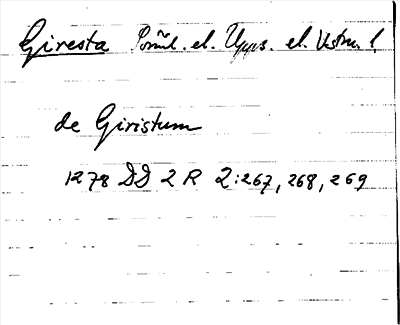 Giresta Soknl. el. Upps. el. Vstm. l.
de Giristum
1278 DD 2 R 2:267, 268, 269